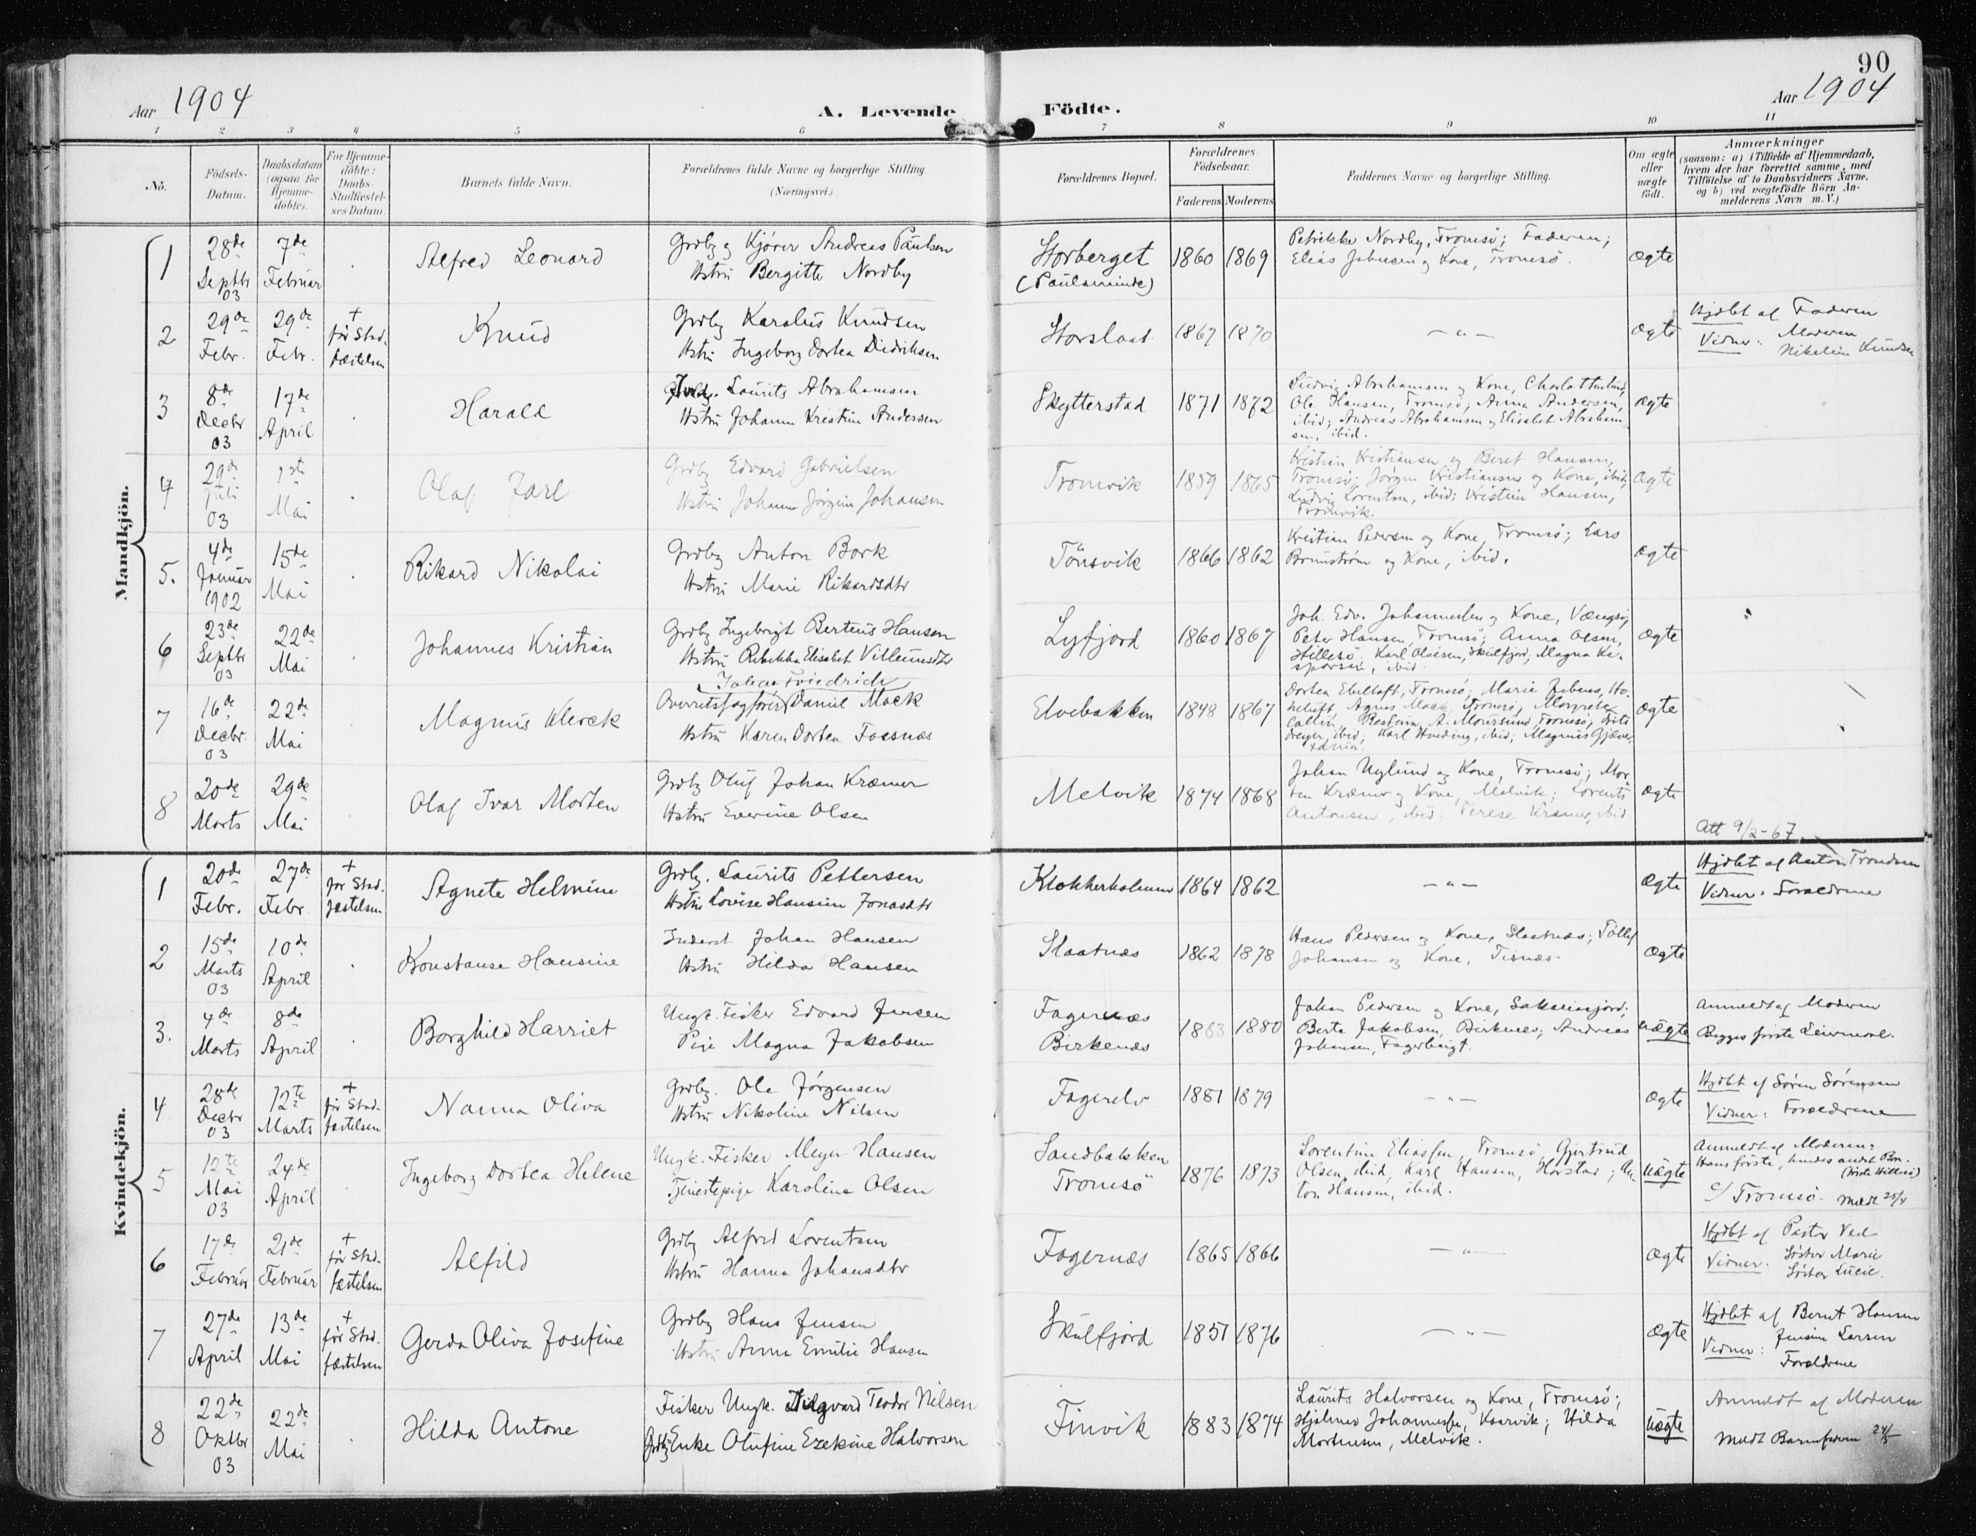 90
Aar 1904
A. Levende Födte.
Aar 1904
1 2 3 4 5 6 7 8 9 10 11
No.
Födsels-Datum.
Daabsdatum (ogsaa for Hjemme-döbte).
For Hjemme-döbte: Daabs-Stadfæstel-ses Datum.
Barnets fulde Navn.
Forældrenes fulde Navne og borgerlige Stilling (Næringsvei.)
Forældrenes Bopæl.
Forældrenes Födselsaar.
Faderens Moderens
Faddernes Navne og borgerlige Stilling.
Om ægte eller uægte födt.
Anmærkninger
(saasom: a) i Tilfælde af Hjemmedaab,
hvem der har forrettet samme, med
Tilföielse af to Daabsvidners Navne,
og b) ved uægtefödte Börn An-
melderens Navn m. V.)
Mandkjön.
1 28de Septbr 03 7de Februar Alfred Leonard
Grdbr og Kjører Andreas Paulsen
Hstru Bergitte Nordby
Storberget (Paulsminde) 1860 1869
Petrikke Nordby, Tromsø; Faderen;
Elias Johnsen og Kone, Tromsø. ægte
2 29de Febr. 29de Febr. + før Stad-fæstelsen Knud
Grdbr Karolus Knudsen
Hstru Ingeborg Dortea Didriksen
Storslaat 1867 1870 — " — ægte
Hjdbt af Faderen
Vidner: Moderen
Nikolein Knudsen
3 8de Decbr 03 17de April Harald
Laurits Abrahamsen
Hstru Johanne Kristine Andersen
Skytterstad 1871 1872
Ludvig Abrahamsen og Kone, Charlottenlund,
Ole Hansen, Tromsø, Anna Andersen,
ibid; Andreas Abrahamsen og Elisabet Abraham-
sen, ibid. ægte
4 29de Juli 03 1ste Mai Olaf Jarl
Grdbr Edvard Gabrielsen
Hstru Johanne Jørgine Johansen
Tromvik 1859 1865
Kristian Kristiansen og Beret Hansen,
Tromsø; Jørgen Kristiansen og Kone, ibid;
Ludvig Lorentsen, ibid; Kristein Hansen,
Tromvik. ægte
5. 4de Januar 1902 15de Mai Rikard Nikolai
Grdbr Anton Bork
Hstru Marie Rikardsdtr
Tönsvik 1866 1862
Kristian Pedersen og Kone, Tromsø; Lars
Brunstrøm og Kone, ibid. ægte
6 23de Septbr 03 22de Mai Johannes Kristian
Grdbr Ingebrigt Berteus Hansen
Hstru Rebekka Elisabet Villumsdtr
Lyfjord 1860 1867
Joh. Edv. Johannesen og Kone, Vængsø;
Peter Hansen, Tromsø; Anna Olsen,
Hillesø, Karl Olaisen, Skulfjord, Magna Ka-
spersen, ibid. ægte
7 16de Decbr. 03 22de Mai Magnus Klerck
Johan Friedrich
Overretssagfører Daniel Mack
Hstru Karen Dortea Foesnæs
Elvebakken 1848 1867
Dortea Ebeltoft, Tromsø; Marie
Agnes Mack, Tromsø, Margrete
A. Moursund, Tromsø,
Dreyer, ibid; Karl Hveding, ibid; Magnus Gjæver,
ægte
8 20de Marts 29de Mai Olaf Ivar Morten
Grdbr Oluf Johan Kræmer
Hstru Everine Olsen
Melvik 1874 1868
Johan Uglund og Kone, Tromsø; Mor-
ten Kræmer og Kone, Melvik; Lorents
Antonsen, ibid. Terese Kræmer, ibid. ægte
Att 9/2-67.
Kvindekjön.
1 20de Febr. 27de Febr + før Stad-fæstelsen Agnete Helmine
Grdbr. Laurits Pettersen
Hstru Lovise Hansine Jonasdtr
Klokkerholmen 1864 1862 — " — ægte
Hjdbt af Anton Trondsen
Vidner: Forældrene
2 15de Marts 03 10de April Konstanse Hansine
Inderst Johan Hansen
Hstru Hilda Hansen
Slaatnæs 1862 1878
Hans Pedersen og Kone, Slaatnæs; Tollef
Johansen og Kone, Tisnæs. ægte
3. 4de Marts 8de April Borghild Harriet
Ungk. Fisker Edvard Jensen
Pige Magna Jakobsen
Fagernæs Birkenæs 1883 1880
Johan Pedersen og Kone, Sakariasjord;
Berte Jakobsen, Birknæs; Andreas
Johansen, Fagerheigt. uægte
Anmeldt af Moderen
Begges første Leiermaal.
4 28de Decbr 03 12te Marts + før Stad-fæstelsen Nanna Oliva
Grdbr. Ole Jørgensen
Hstru Nikoline Nilsen
Fagerelv 1881 1879 — " — ægte
Hjdbt af Søren Sørensen
Vidner: Forældrene
5 12te Mai 03 24de April Ingeborg Dortea Helene
Ungk. Fisker Meyer Hansen
Tjenestepige Karoline Olsen
Sandbakken Tromsø 1876 1873
Lorentine Eliassen Tromsø, Gjertrud
Olsen, ibid, Karl Hansen, Horstad; An-
ton Hansen, ibid. uægte
Anmeldt af Moderen:
Hans første, hendes andet Brn.
(første Hillesø)
c/ Tromsø. Meldt 25/4
6 17de Februar 21de Februar + før Stad-fæstelsen Alfild
Grdbr Alfred Lorentsen
Hstru Hanna Johansdtr
Fagernæs 1865 1866 — " — ægte
Hjdbt af Peder Ved
Vidner: Søster Marie
Søster Lucie.
7 27de April 13de Mai + før Stad-fæstelsen Gerda Oliva Josefine
Grdbr Hans Jensen
Hstru Anna Emilie Hansen
Skulfjord 1851 1876 — " — ægte
Hjdbt af Bernt Hansen
Vidner: Jensine Larsen
Forældrene
8 22de Oktbr 03 22de Mai Hilda Antone
Fisker Ungk. Hilgvard Teodor Nilsen
Enke Olufine Ezekine Halvorsen
Finvik 1883 1874
Laurits Halvorsen og Kone, Tromsø;
Hjalmar Johannessen, Kaarvik; Hilda
Mortensen, Melvik. uægte
Anmeldt af Moderen
Meldt Barnefaren 24/5